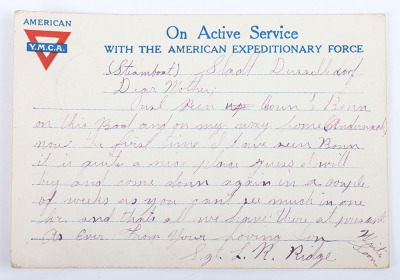 AMERICAN
Y.M.C.A.
On Active Service
WITH THE AMERICAN EXPEDITIONARY FORCE
(Steamboat) Stadt Dusseldorf
Dear Mother,
Just been up Down to Bonn
on this Boat and on my way home (Andernach)
now the first time I have seen Bonn
it is quite a nice place guess I will
try and come down again in a couple
of weeks as you can't see much in one
day and that's all we have there at present
As Ever From Your Loving Son
Write Soon
Sgt. L. R. Ridge